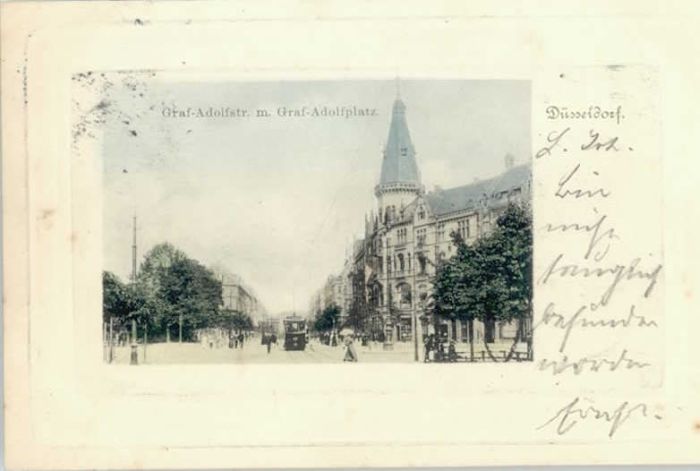 Graf-Adolfstr. m. Graf-Adolfplatz.
Düsseldorf.
Bin
nicht
tauglich
befunden
worden
Ernst.